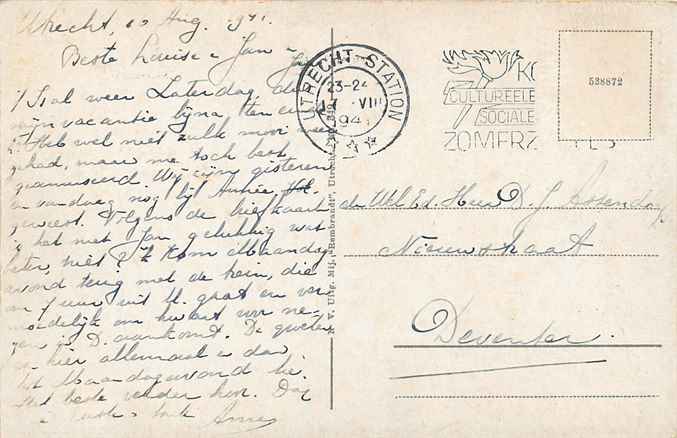 Utrecht, Aug. 1941.
Beste Louise - Jan -
't Is al weer Zaterdag, de
mijn vacantie bijna ten ein
'k Heb wel niet zulk mooi weer
gehad, maar me toch best
geamuseerd. Wij zijn gisteren
en vandaag nog bij
geweest. Volgens de briefkaart
is het met Jan gelukkig wat
beter, niet? 'k Kom Maandag
avond terug met de trein, die
om 7 uur uit U. gaat en ver
moedelijk om kwart voor ne-
gen in D. aankomt. De groeten
hier allemaal en dan
tot Maandagavond hè.
Het beste verder hoor. Dag
UTRECHT-STATION
23-24
17 VIII
194
CULTUREELE
SOCIALE
ZOMERZ
538872
N. V. Uitg. Mij. "Rembrandt", Utrecht
den Wel Ed. Heer D. J.
Nieuwstraat
Deventer.